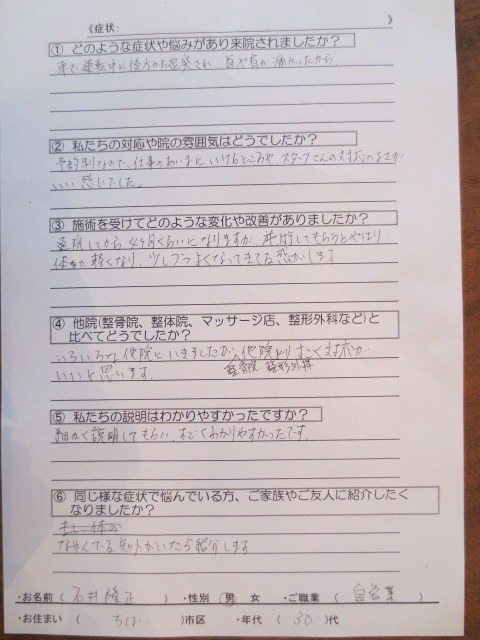 《症状:　》
① どのような症状や悩みがあり来院されましたか？
車で運転中に後方から追突され 首や肩が痛かったから。
② 私たちの対応や院の雰囲気はどうでしたか？
予約制なので、仕事のあいまに いけるところや スタッフさんの対応のよさが
いい感じでした。
③ 施術を受けてどのような変化や改善がありましたか？
通院してから 4ヶ月くらいになりますが、施術してもらうとやはり
体が軽くなり、少しづつよくなってきてる感がします
④ 他院(整骨院、整体院、マッサージ店、整形外科など)と
比べてどうでしたか？
いろいろな他院といきましたが、他院よりすごく対応が
整骨院 整形外科
いいと思います。
⑤ 私たちの説明はわかりやすかったですか？
細かく説明してもらい、すごくわかりやすかったです。
⑥ 同じ様な症状で悩んでいる方、ご家族やご友人に紹介したく
なりましたか？
なやんでる知人がいたら紹介します
・お名前 ( 石井 隆正 ) ・性別 男 女 ・ご職業 ( 自営業 )
・お住まい ( ちば )市区 ・年代 ( 30 )代